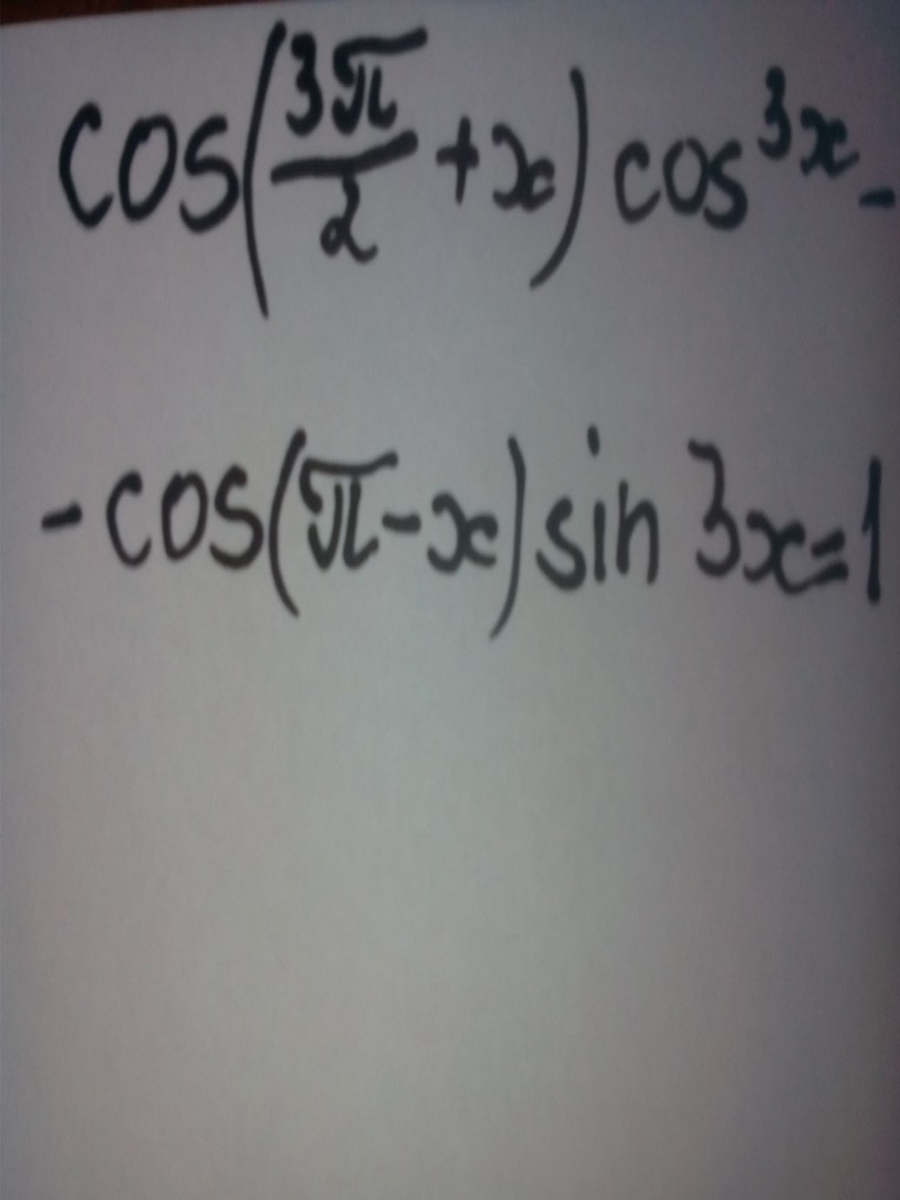 cos(3π/2 + x) cos³ˣ -
- cos(π - x) sin 3x = 1